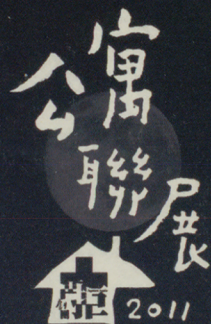 公寓聯展
2011